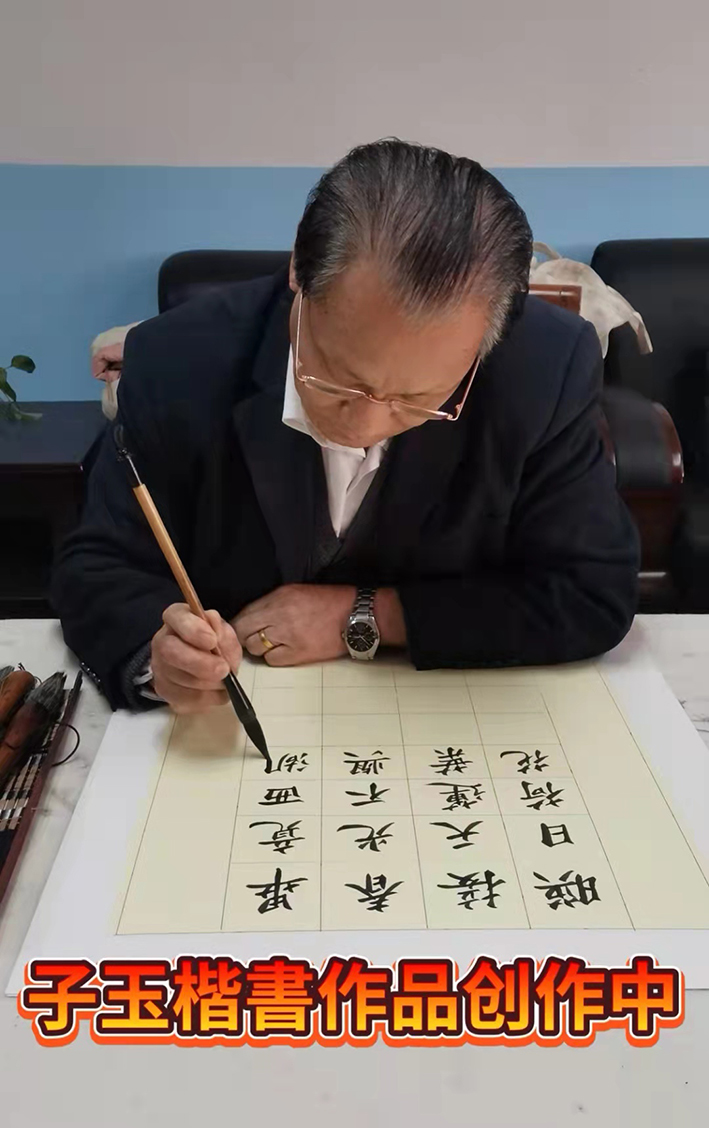 畢竟西湖
春光不與
接天蓮葉
暎日荷花
子玉楷書作品创作中